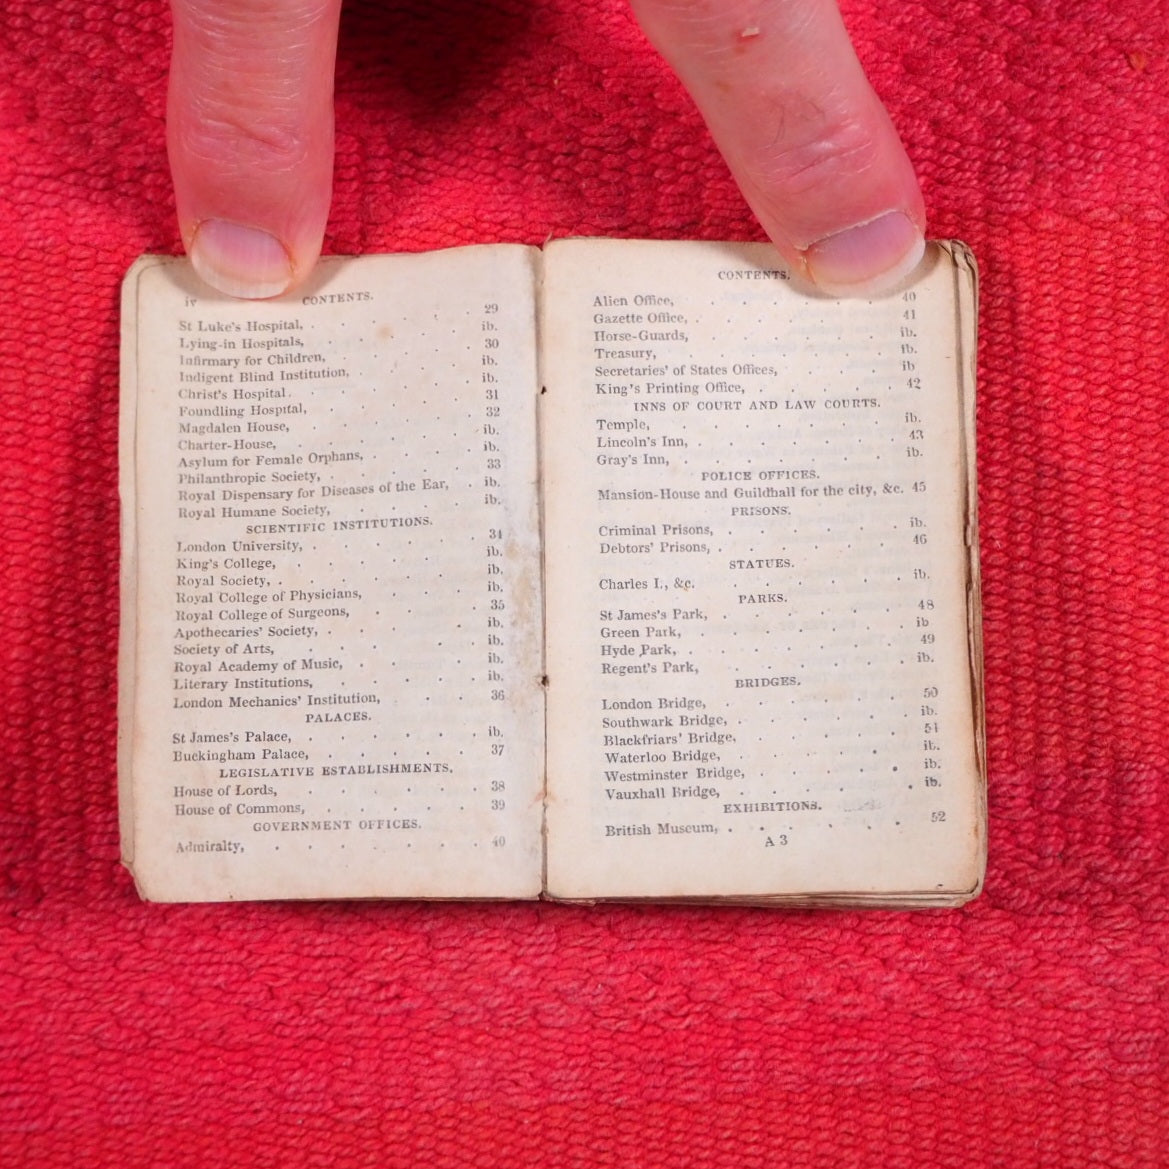 iv CONTENTS.
St Luke's Hospital, . . . . . . 29
Lying-in Hospitals, . . . . . ib.
Infirmary for Children, . . . . . 30
Indigent Blind Institution, . . . . ib.
Christ's Hospital . . . . . . ib.
Foundling Hospital, . . . . . 31
Magdalen House, . . . . . . 32
Charter-House, . . . . . . ib.
Asylum for Female Orphans, . . . . ib.
Philanthropic Society, . . . . . 33
Royal Dispensary for Diseases of the Ear, . ib.
Royal Humane Society, . . . . . ib.
SCIENTIFIC INSTITUTIONS.
London University, . . . . . . 34
King's College, . . . . . . ib.
Royal Society, . . . . . . ib.
Royal College of Physicians, . . . . ib.
Royal College of Surgeons, . . . . 35
Apothecaries' Society, . . . . . ib.
Society of Arts, . . . . . . ib.
Royal Academy of Music, . . . . . ib.
Literary Institutions, . . . . . ib.
London Mechanics' Institution, . . . 36
PALACES.
St James's Palace, . . . . . . ib.
Buckingham Palace, . . . . . 37
LEGISLATIVE ESTABLISHMENTS.
House of Lords, . . . . . . 38
House of Commons, . . . . . 39
GOVERNMENT OFFICES.
Admiralty, . . . . . . . 40
CONTENTS.
Alien Office, . . . . . . 40
Gazette Office, . . . . . . 41
Horse-Guards, . . . . . . ib.
Treasury, . . . . . . . ib.
Secretaries' of States Offices, . . . . ib
King's Printing Office, . . . . . 42
INNS OF COURT AND LAW COURTS.
Temple, . . . . . . . ib.
Lincoln's Inn, . . . . . . 43
Gray's Inn, . . . . . . . ib.
POLICE OFFICES.
Mansion-House and Guildhall for the city, &c. 45
PRISONS.
Criminal Prisons, . . . . . . ib.
Debtors' Prisons, . . . . . . 46
STATUES.
Charles I., &c. . . . . . . ib.
PARKS.
St James's Park, . . . . . . 48
Green Park, . . . . . . . ib
Hyde Park, . . . . . . . 49
Regent's Park, . . . . . . ib.
BRIDGES.
London Bridge, . . . . . . 50
Southwark Bridge, . . . . . . ib.
Blackfriars' Bridge, . . . . . 51
Waterloo Bridge, . . . . . . ib.
Westminster Bridge, . . . . . ib.
Vauxhall Bridge, . . . . . . ib.
EXHIBITIONS.
British Museum, . . . . . . 52
A 3